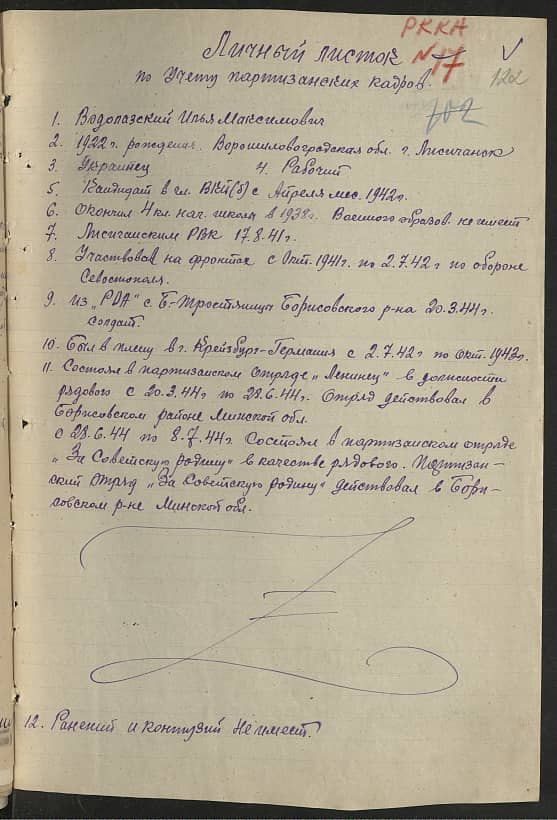 РККА
№ 17
Личный листок
по учету партизанских кадров.
122
702
1. Водолазский Илья Максимович
2. 1922 г. рождения. Ворошиловградская обл. г. Лисичанск
3. Украинец 4. Рабочий
5. Кандидат в чл. ВКП(б) с Апреля мес. 1942 г.
6. Окончил 4 кл. нач. школы в 1938 г. Военного образов. не имеет
7. Лисичанским РВК 17.8.41 г.
8. Участвовал на фронтах с Окт. 1941 г. по 2.7.42 г по обороне
Севостополя.
9. Из „РОА" с Б-Тростяница Борисовского р-на 20.3.44 г.
солдат.
10. Был в плену в г. Крейзбург-Германия с 2.7.42 г по окт. 1942 г.
11. Состоял в партизанском отряде „Ленинец" в должности
рядового с 20.3.44 г по 28.6.44 г. Отряд действовал в
Борисовском районе Минской обл.
с 28.6.44 по 8.7.44 г. Состоял в партизанском отряде
„За Советскую родину" в качестве рядового. Партизан-
ский отряд „За Советскую родину" действовал в Бори-
совском р-не Минской обл.
12. Ранений и контузий не имеет.